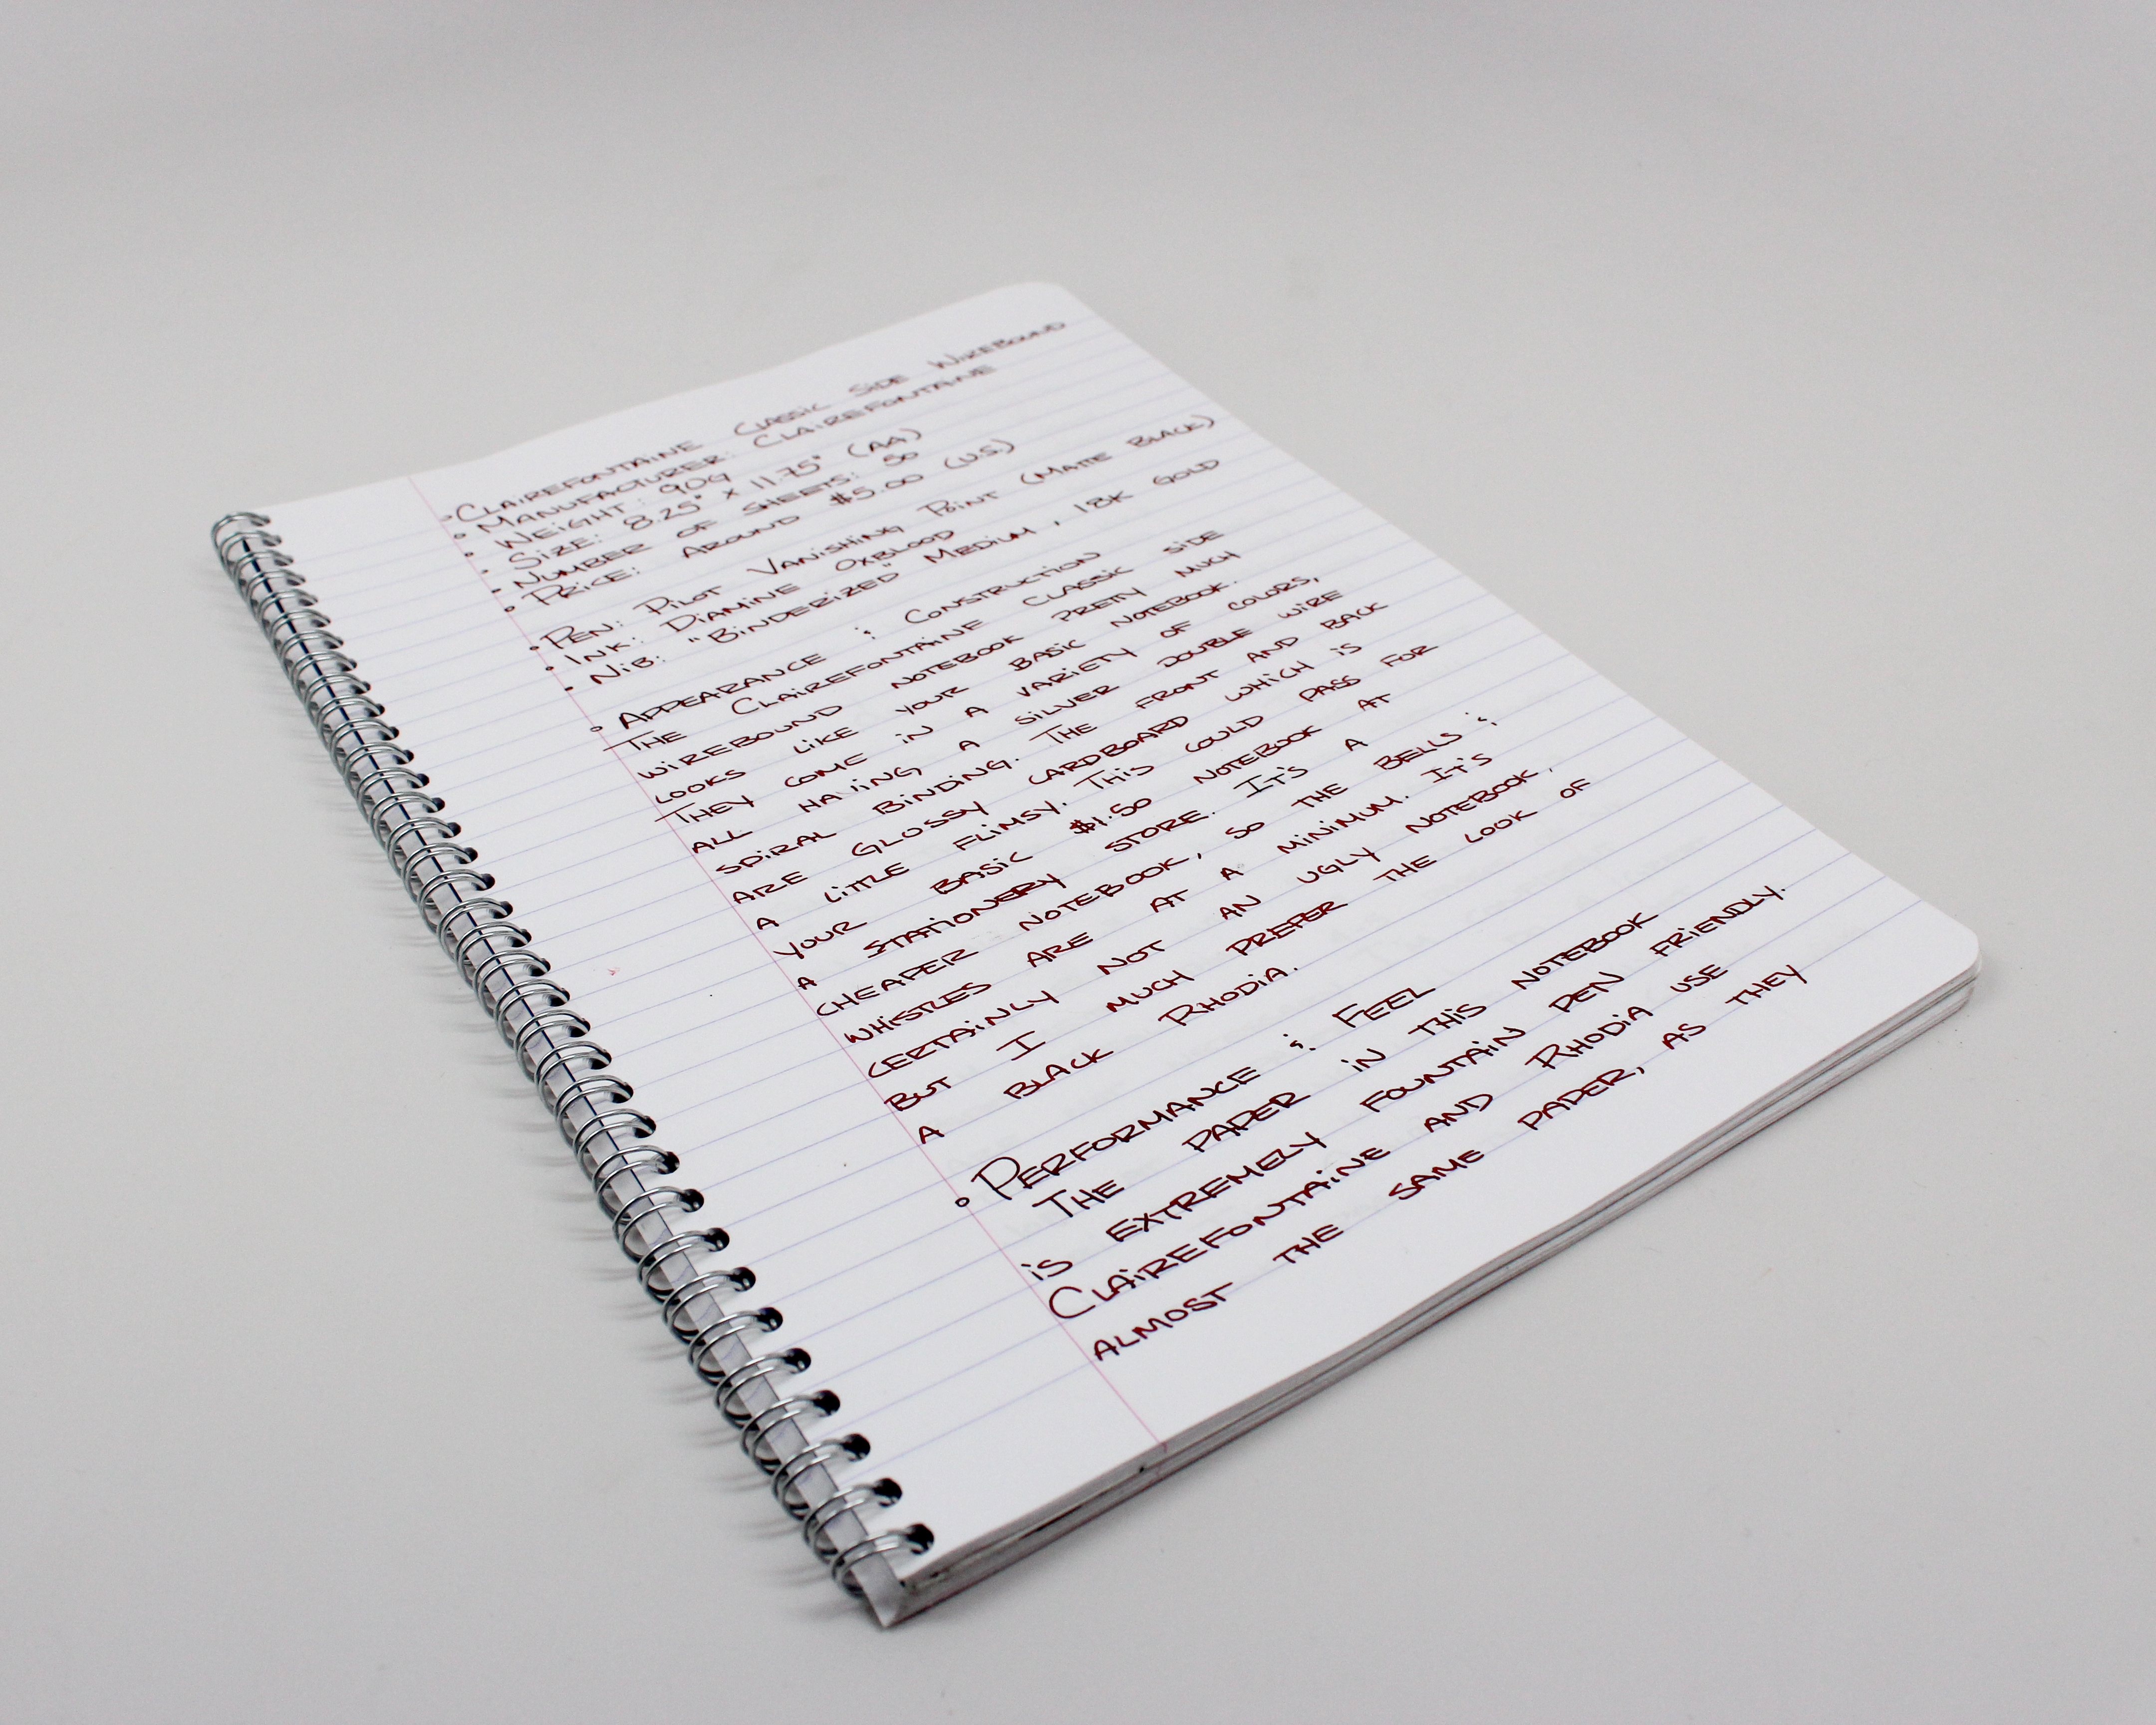 ◦ CLAIREFONTAINE CLASSIC SIDE WIREBOUND
◦ MANUFACTURER: CLAIREFONTAINE
◦ WEIGHT: 90G
◦ SIZE: 8.25" x 11.75" (A4)
◦ NUMBER OF SHEETS: 50
◦ PRICE: AROUND $5.00 (U.S)
◦ PEN: PILOT VANISHING POINT (MATTE BLACK)
◦ INK: DIAMINE OXBLOOD
◦ NIB: "BINDERIZED" MEDIUM, 18K GOLD
◦ APPEARANCE & CONSTRUCTION
THE CLAIREFONTAINE CLASSIC SIDE
WIREBOUND NOTEBOOK PRETTY MUCH
LOOKS LIKE YOUR BASIC NOTEBOOK.
THEY COME IN A VARIETY OF COLORS,
ALL HAVING A SILVER DOUBLE WIRE
SPIRAL BINDING. THE FRONT AND BACK
ARE GLOSSY CARDBOARD WHICH IS
A LITTLE FLIMSY. THIS COULD PASS FOR
YOUR BASIC $1.50 NOTEBOOK AT
A STATIONERY STORE. IT'S A
CHEAPER NOTEBOOK, SO THE BELLS &
WHISTLES ARE AT A MINIMUM. IT'S
CERTAINLY NOT AN UGLY NOTEBOOK,
BUT I MUCH PREFER THE LOOK OF
A BLACK RHODIA.
◦ PERFORMANCE & FEEL
THE PAPER IN THIS NOTEBOOK
IS EXTREMELY FOUNTAIN PEN FRIENDLY.
CLAIREFONTAINE AND RHODIA USE
ALMOST THE SAME PAPER, AS THEY